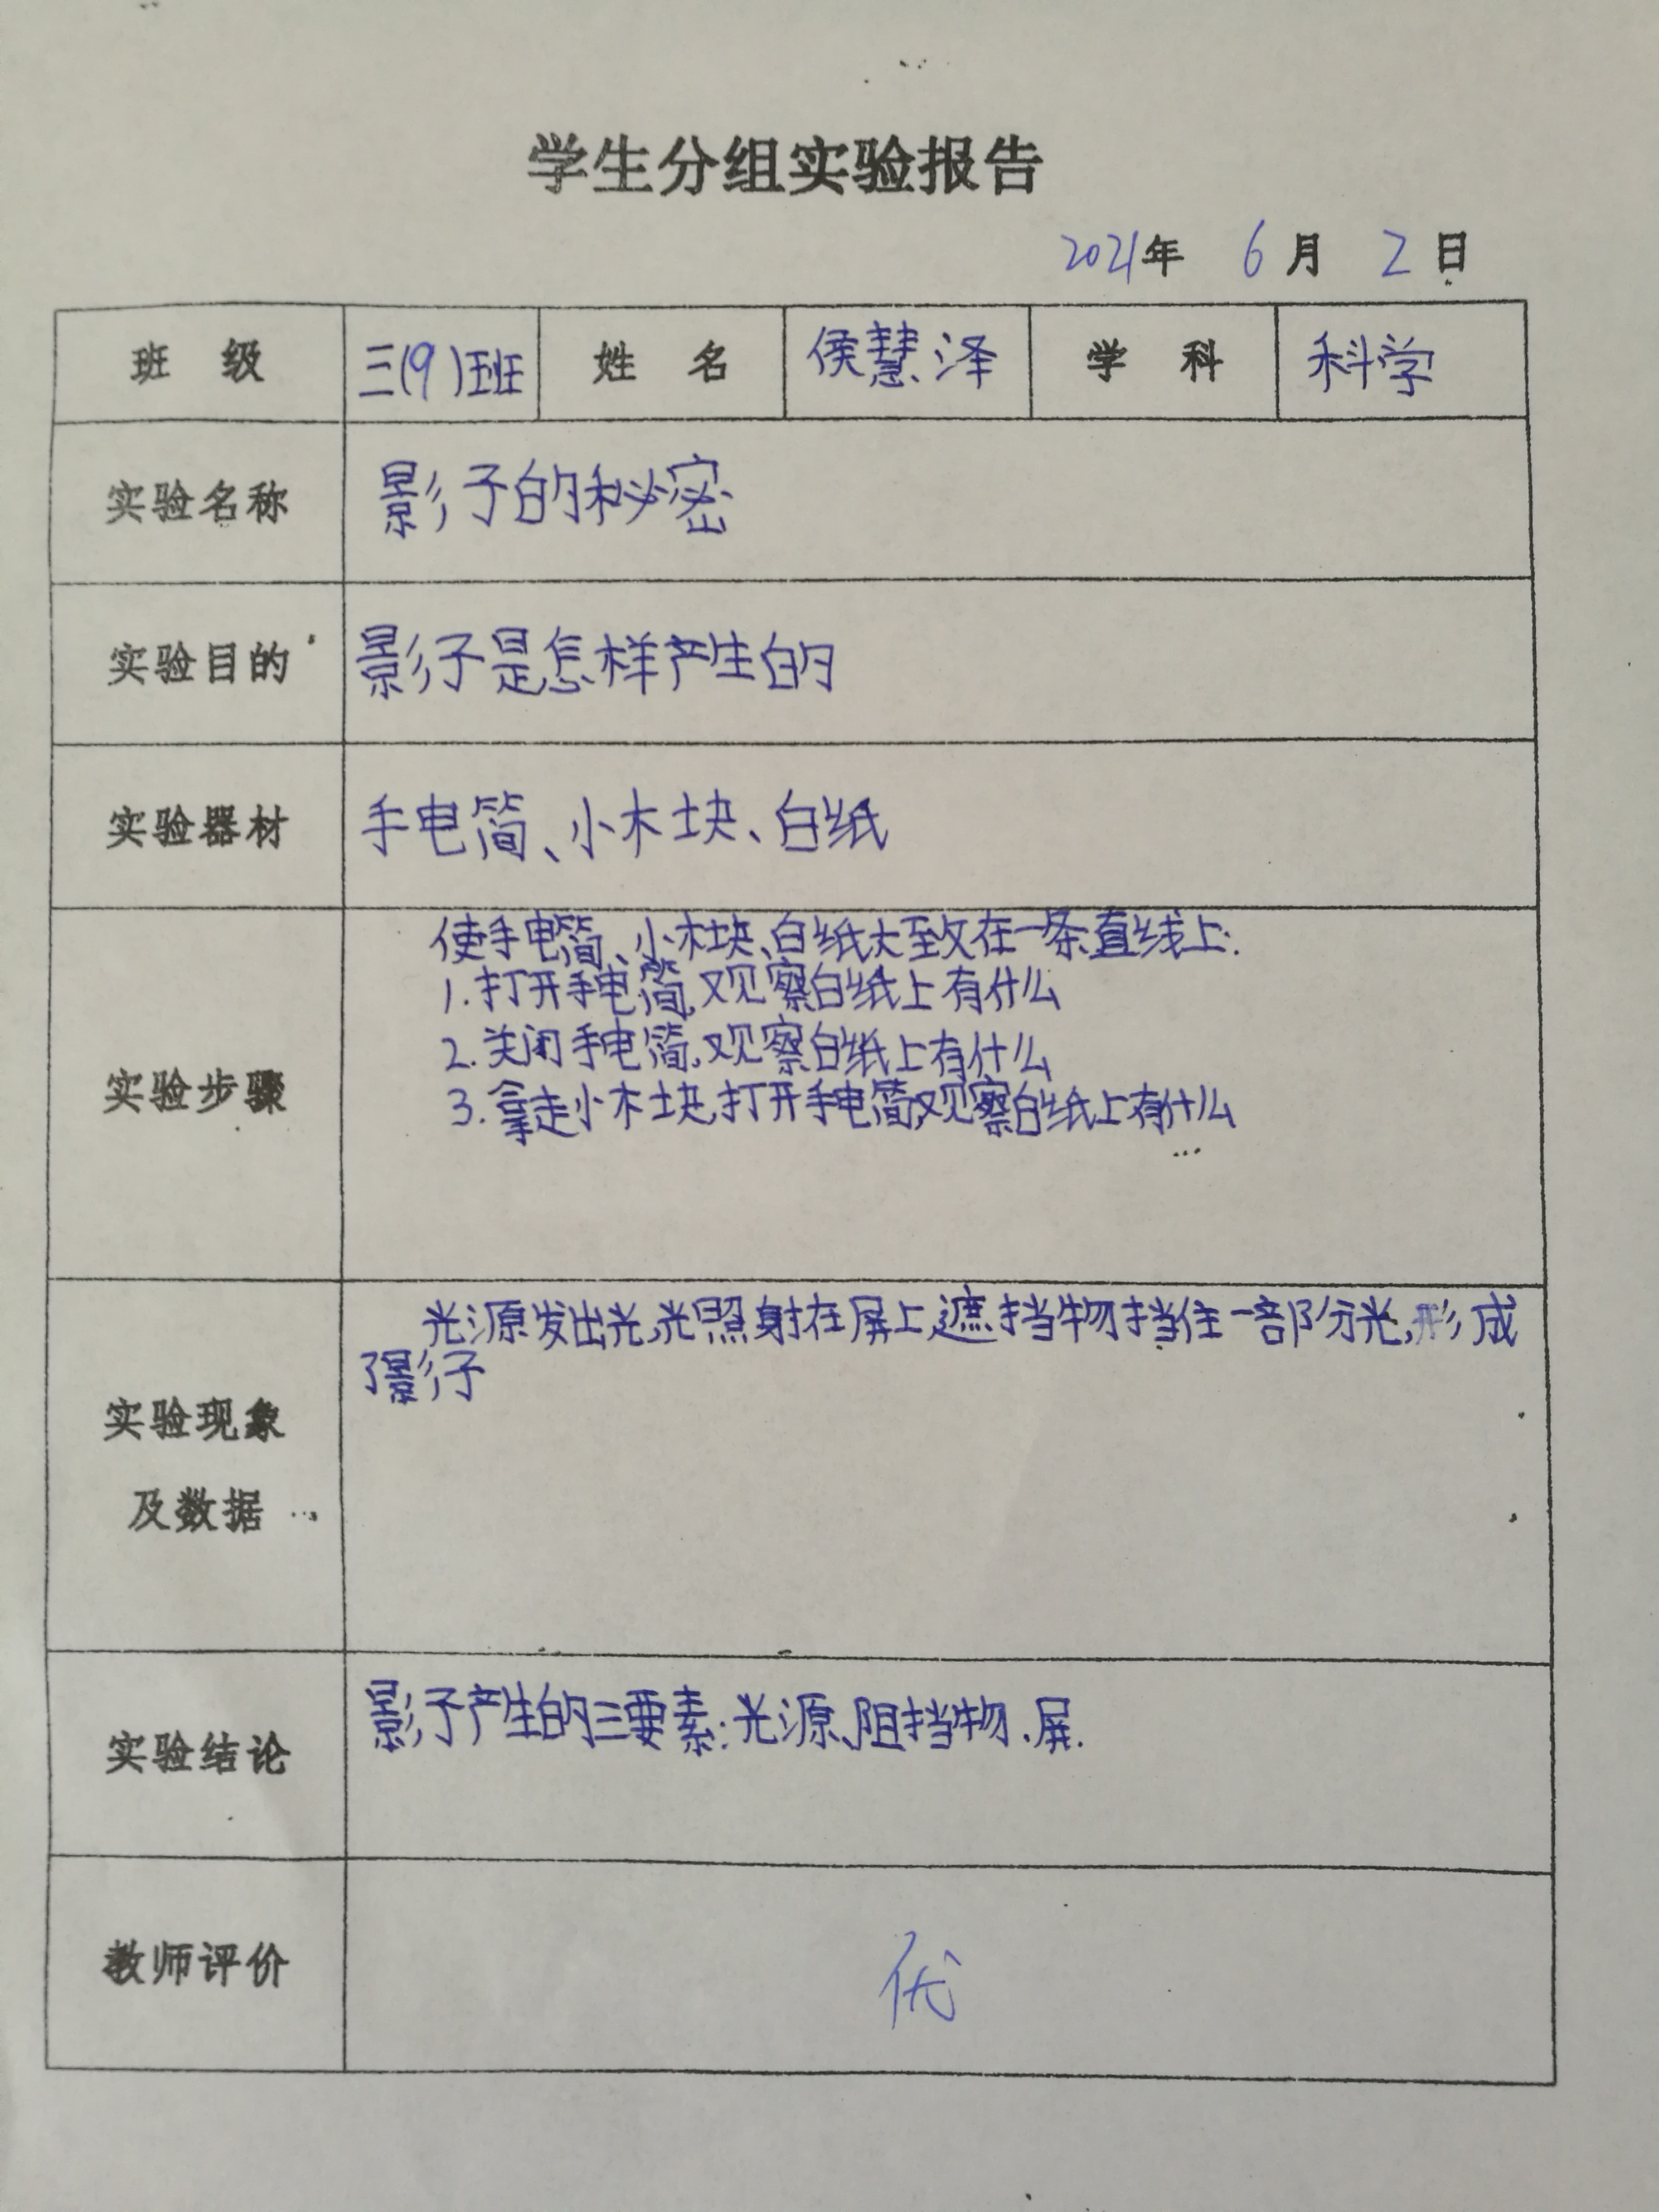 学生分组实验报告
2021年 6月 2日
班 级 三(9)班 姓 名 侯慧泽 学 科 科学
实验名称 影子的秘密
实验目的 影子是怎样产生的
实验器材 手电筒、小木块、白纸
使手电筒、小木块、白纸大致在一条直线上.
1.打开手电筒,观察白纸上有什么
2.关闭手电筒,观察白纸上有什么
实验步骤 3.拿走小木块,打开手电筒,观察白纸上有什么
光源发出光,光照射在屏上,遮挡物挡住一部分光,形成
了影子
实验现象
及数据
实验结论 影子产生的三要素:光源、阻挡物、屏.
教师评价 优